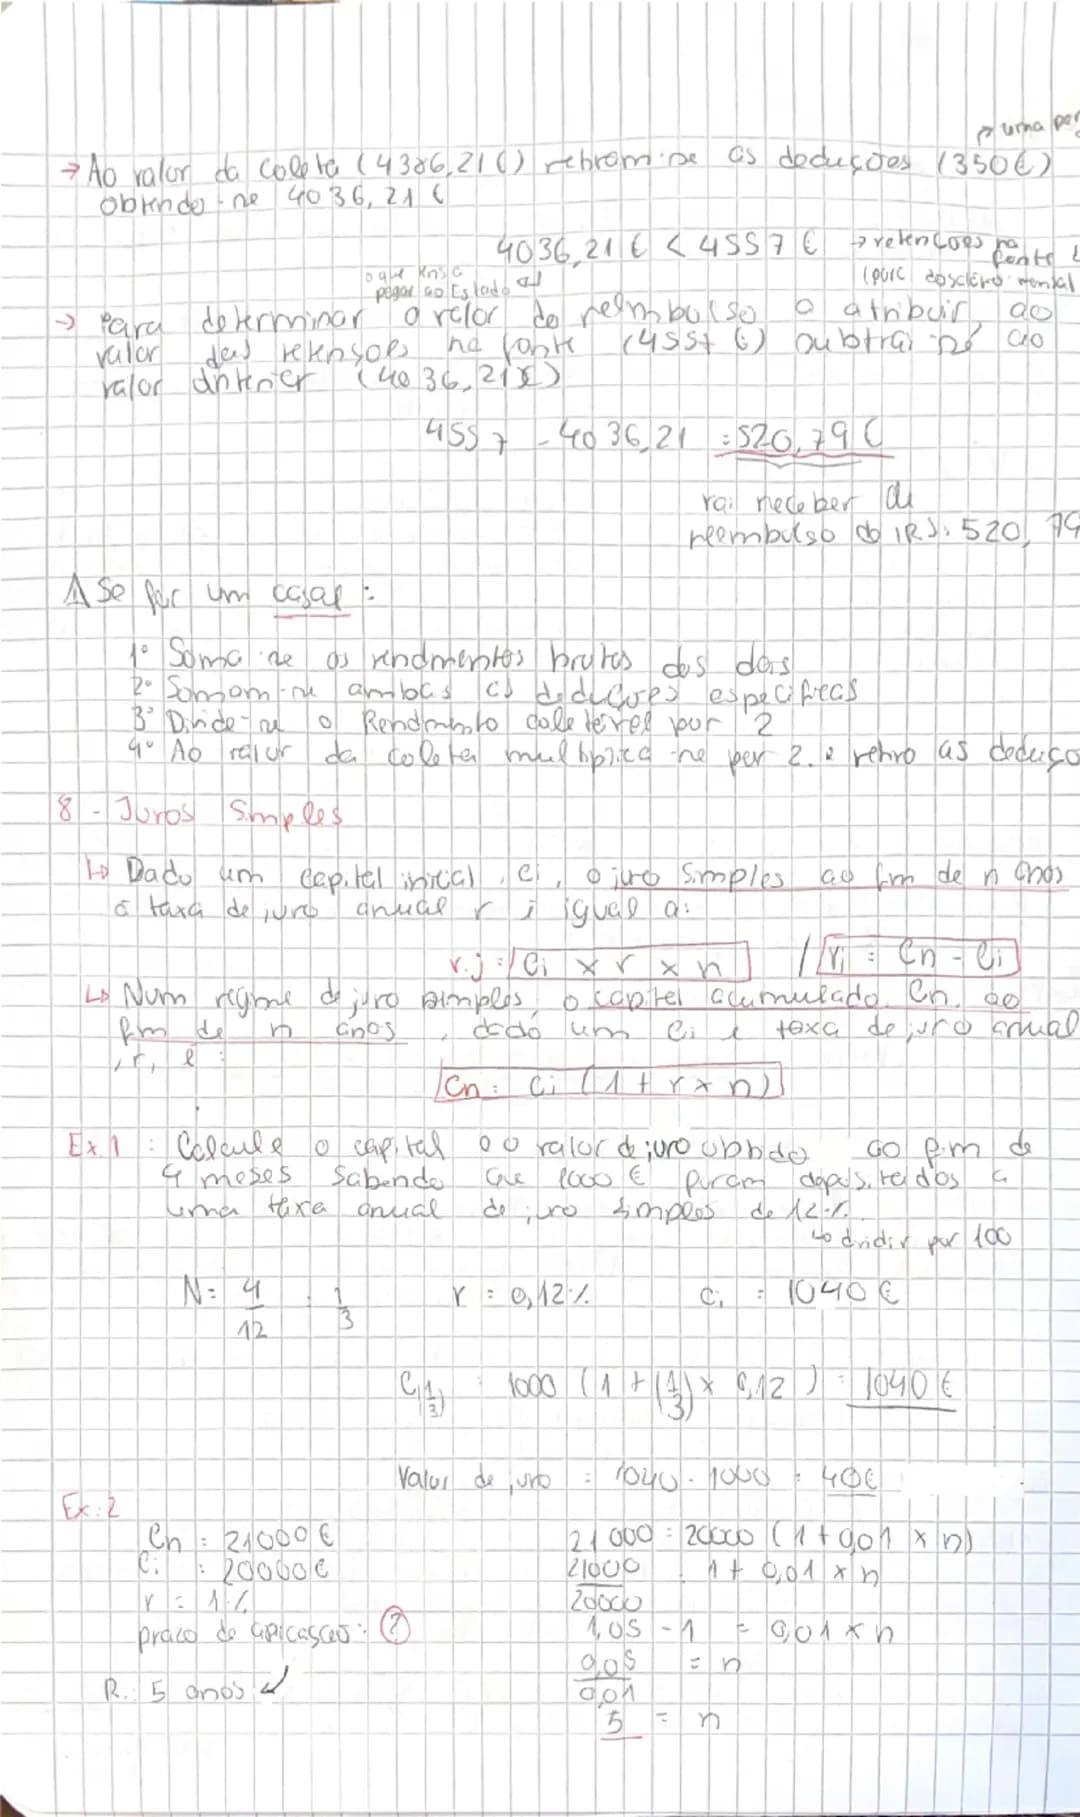 → uma per
→ Ao valor da coleta (4386,21€) retiram-se as deduções (350€)
obtendo-se 4036,21€
4036,21€ < 4557€ → retenções na fonte
(parc descleros mensal
o que tinha a
pagar ao Estado
→ Para determinar o valor do reembolso a atribuir, ao
valor das retensões na fonte (4557€) subtrai-se ao
valor anterior (4036,21€)
4557 - 4036,21 = 520,79€
vai receber de
reembolso do IRS: 520,79
⚠ Se for um casal:
1º Soma-se os rendimentos brutos dos dois
2º Somam-se ambas as deduções especificas
3º Divide-se o Rendimento coletável por 2
4º Ao valor da coleta multiplica-se por 2. e retiro as deduço
8 - Juros Simples
↳ Dado um capital inicial, Ci, o juro simples ao fim de n anos
à taxa de juro anual r é igual a:
v.j = Ci x r x n / vj = Cn - Ci
↳ Num regime de juro simples, o capital acumulado, Cn, ao
fim de n anos, dado um Ci e taxa de juro anual
, r, é:
Cn = Ci (1 + r x n)
Ex.1: Calcule o capital e o valor de juro obtido ao fim de
4 meses sabendo que 1000€ foram depositados a
uma taxa anual de juro simples de 12%.
↳ dividir por 100
N = 4/12 = 1/3 r = 0,12% Ci = 1040€
C(1/3) = 1000 (1 + (1/3) x 0,12) = 1040€
Valor de juro = 1040 - 1000 = 40€
Ex.2
Cn = 21000€
Ci = 20000€
r = 1%
prazo de apicascao: ?
R.: 5 anos
21 000 = 20000 (1 + 0,01 x n)
21000/20000 = 1 + 0,01 x n
1,05 - 1 = 0,01 x n
0,05/0,01 = n
5 = n